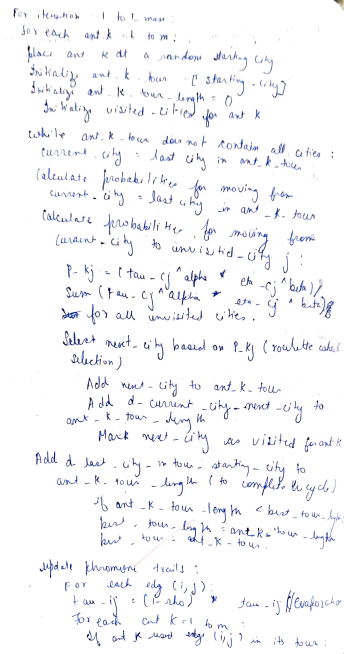 For iteration = 1 to T_max :
for each ant k = 1 to m :
place ant k at a random starting city
Initialize ant_k_tour = [starting_city]
Initialize ant_k_tour_length = 0
Initialize visited_cities for ant k
while ant_k_tour does not contain all cities :
current_city = last city in ant_k_tour
Calculate probabilities for moving from
current_city = last city in ant_k_tour
Calculate probabilities for moving from
current_city to unvisited_city j :
P_kj = (tau_cj^alpha * eta_cj^beta) /
Sum (tau_cj^alpha * eta_cj^beta)
for all unvisited cities.
Select next_city based on P_kj (roulette wheel
selection)
Add next_city to ant_k_tour
Add d_current_city_next_city to
ant_k_tour_length
Mark next_city as visited for ant k
Add d_last_city_in tour_starting_city to
ant_k_tour_length (to complete the cycle)
if ant_k_tour_length < best_tour_length:
best_tour_length = ant_k_tour_length
best_tour = ant_k_tour.
update pheromone trails :
For each edge (i,j) :
tau_ij = (1-rho) * tau_ij //Evaporation
For each ant k=1 to m :
if ant k used edge (i,j) in its tour :